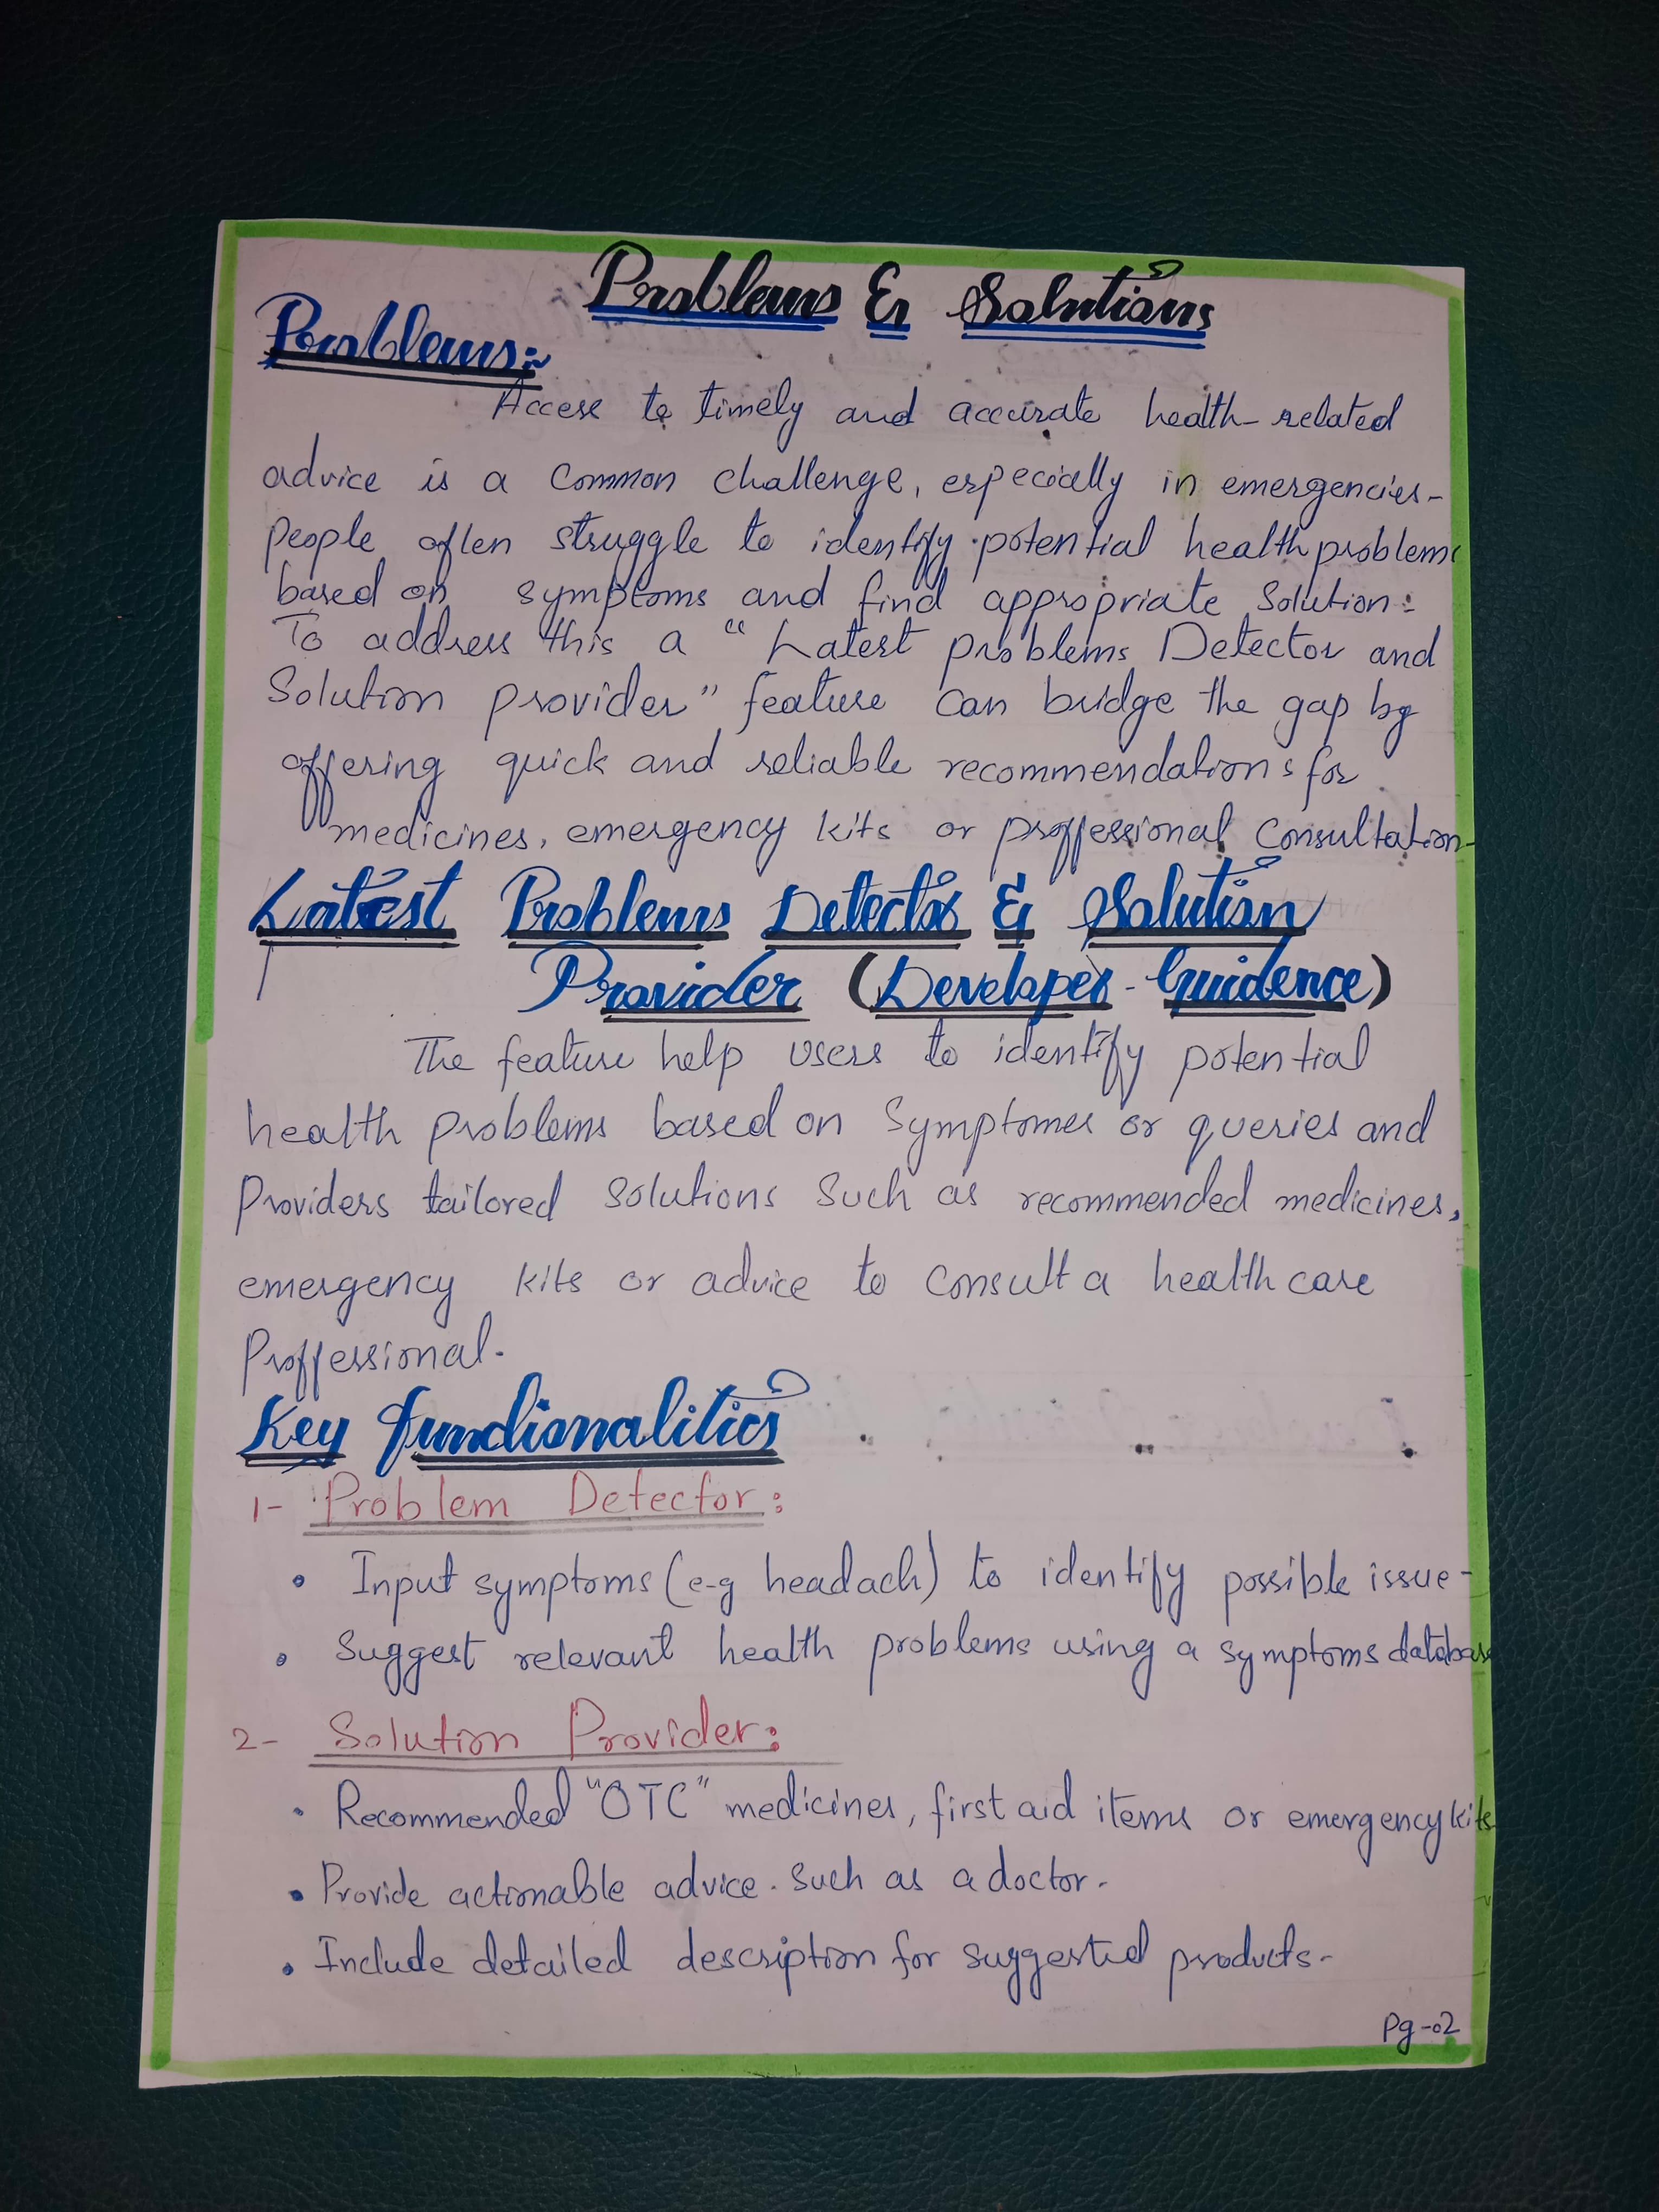 Problems & Solutions
Problems:-
Access to timely and accurate health-related
advice is a common challenge, especially in emergencies-
people often struggle to identify potential health problems
based on symptoms and find appropriate solution:
To address this a "Latest problems Detector and
Solution provider" feature can bridge the gap by
offering quick and reliable recommendations for
medicines, emergency kits or proffessional Consultation-
Latest Problems Detector & Solution
Provider (Developer-Guidence)
The feature help users to identify potential
health problems based on Symptomes or queries and
Providers tailored Solutions Such as recommended medicines,
emergency kits or advice to consult a health care
Proffessional-
Key functionalities
1- Problem Detector:
• Input symptoms (e-g headach) to identify possible issue-
• Suggest relevant health problems using a symptoms database
2- Solution Provider:
• Recommended "OTC" medicines, first aid items or emergency kits
• Provide actionable advice. Such as a doctor-
• Include detailed description for suggested products-
Pg-02